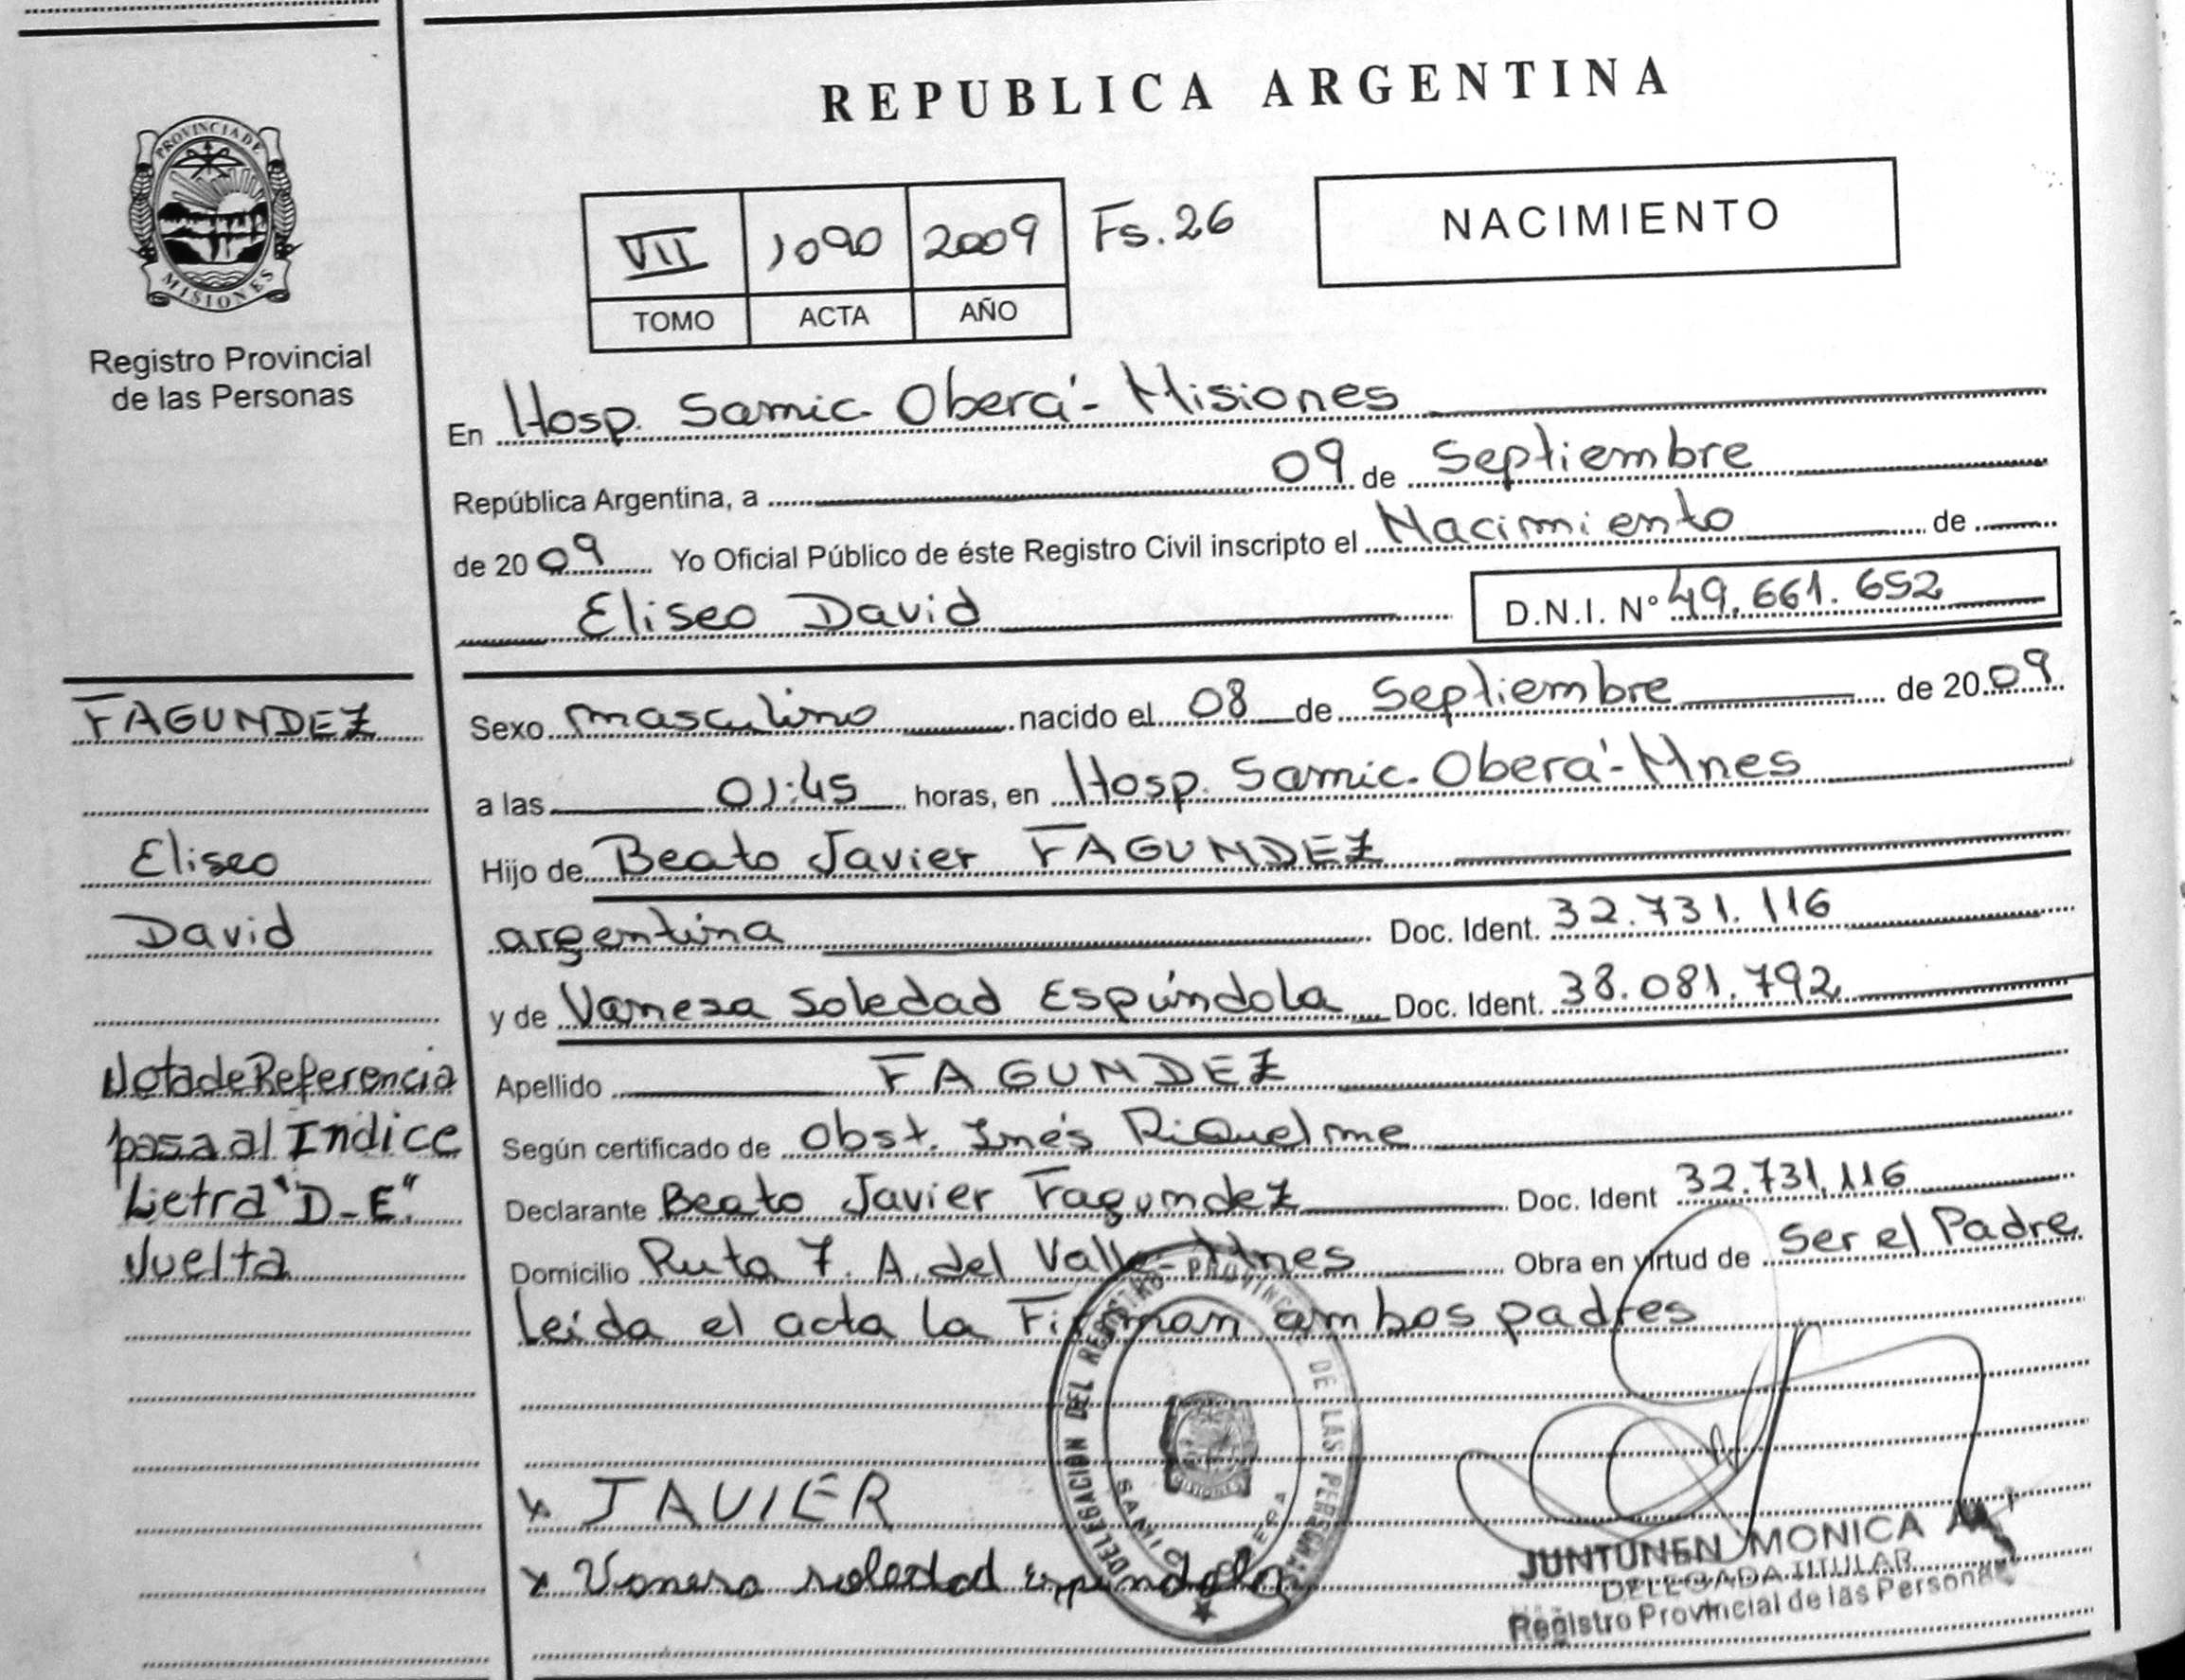 PROVINCIA DE
MISIONES
Registro Provincial
de las Personas
FAGUNDEZ
Eliseo
David
Nota de Referencia
pasa al Indice
Letra "D-E"
Vuelta
REPUBLICA ARGENTINA
VII 1090 2009 Fs. 26
TOMO ACTA AÑO
NACIMIENTO
En Hosp. Samic. Oberá - Misiones
República Argentina, a 09 de Septiembre
de 2009 Yo Oficial Público de éste Registro Civil inscripto el Nacimiento de
Eliseo David D.N.I. Nº 49.661.652
Sexo masculino nacido el 08 de Septiembre de 2009
a las 01:45 horas, en Hosp. Samic. Oberá - Mnes
Hijo de Beato Javier FAGUNDEZ
argentina Doc. Ident. 32.731.116
y de Vanesa Soledad Espíndola Doc. Ident. 38.081.792
Apellido FAGUNDEZ
Según certificado de Obst. Inés Riquelme
Declarante Beato Javier Fagundez Doc. Ident 32.731.116
Domicilio Ruta 7. A. del Valle - Mnes Obra en virtud de Ser el Padre
Leída el acta la Firman ambos padres
DELEGACION DEL REGISTRO PROVINCIAL DE LAS PERSONAS
MISIONES
x JAVIER
x Vanesa soledad espindola
JUNTUNEN MONICA
DELEGADA TITULAR
Registro Provincial de las Personas